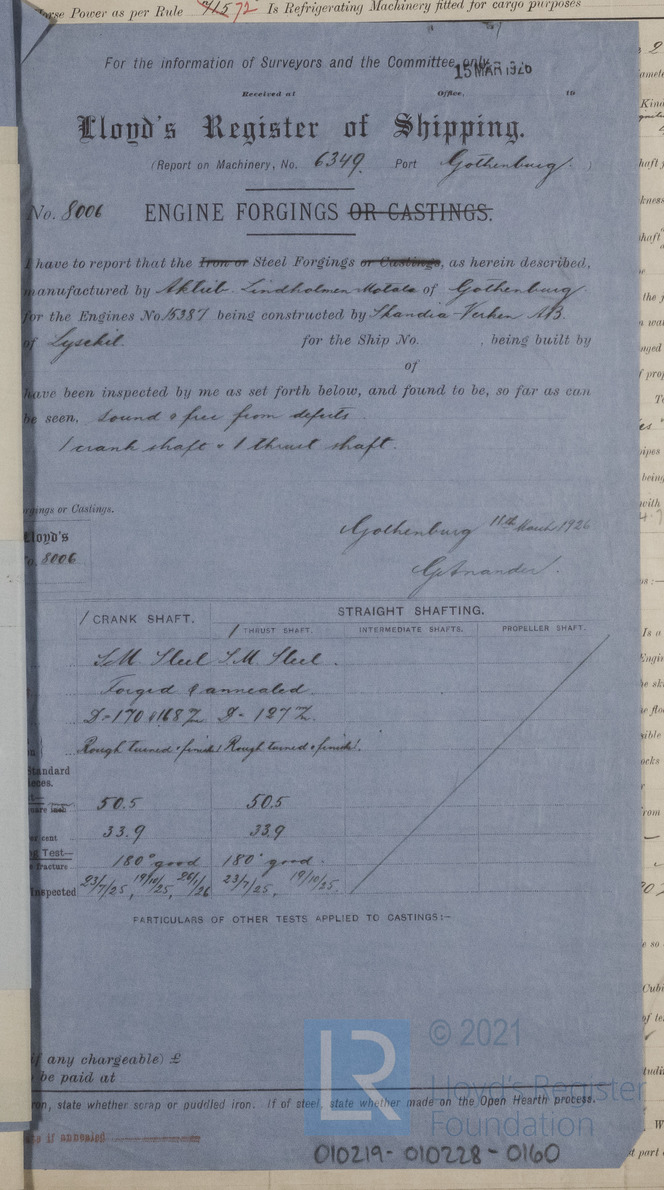 Horse Power as per Rule 415 72 Is Refrigerating Machinery fitted for cargo purposes
For the information of Surveyors and the Committee only.
15 MAR 1926
Received at Office, 19
Lloyd's Register of Shipping.
(Report on Machinery, No. 6349. Port Gothenburg.)
No. 8006 ENGINE FORGINGS OR CASTINGS.
I have to report that the Iron or Steel Forgings or Castings, as herein described,
manufactured by Aktieb. Lindholmen Motala of Gothenburg
for the Engines No 15387 being constructed by Skandia-Verken AB.
of Lysekil. for the Ship No. , being built by
of
have been inspected by me as set forth below, and found to be, so far as can
be seen, sound & free from defects
1 crank shaft & 1 thrust shaft.
rgings or Castings.
Lloyd's
o. 8006
Gothenburg 11th March 1926
STRAIGHT SHAFTING.
1 CRANK SHAFT. 1 THRUST SHAFT. INTERMEDIATE SHAFTS. PROPELLER SHAFT.
S.M. Steel S.M. Steel.
Forged & annealed.
D-170 & 168 D- 127
Rough turned & finish: Rough turned & finish!
Standard
50.5 50.5
uare inch
er cent 33.9 33.9
g Test—
e fracture 180° good 180° good.
Inspected 23/7/25, 19/10/25, 26/1/26 23/7/25, 19/10/25.
PARTICULARS OF OTHER TESTS APPLIED TO CASTINGS:—
if any chargeable) £
be paid at
ron, state whether scrap or puddled iron. If of steel, state whether made on the Open Hearth process.
if annealed
LR
© 2021
Lloyd's Register
Foundation
010219-010228-0160